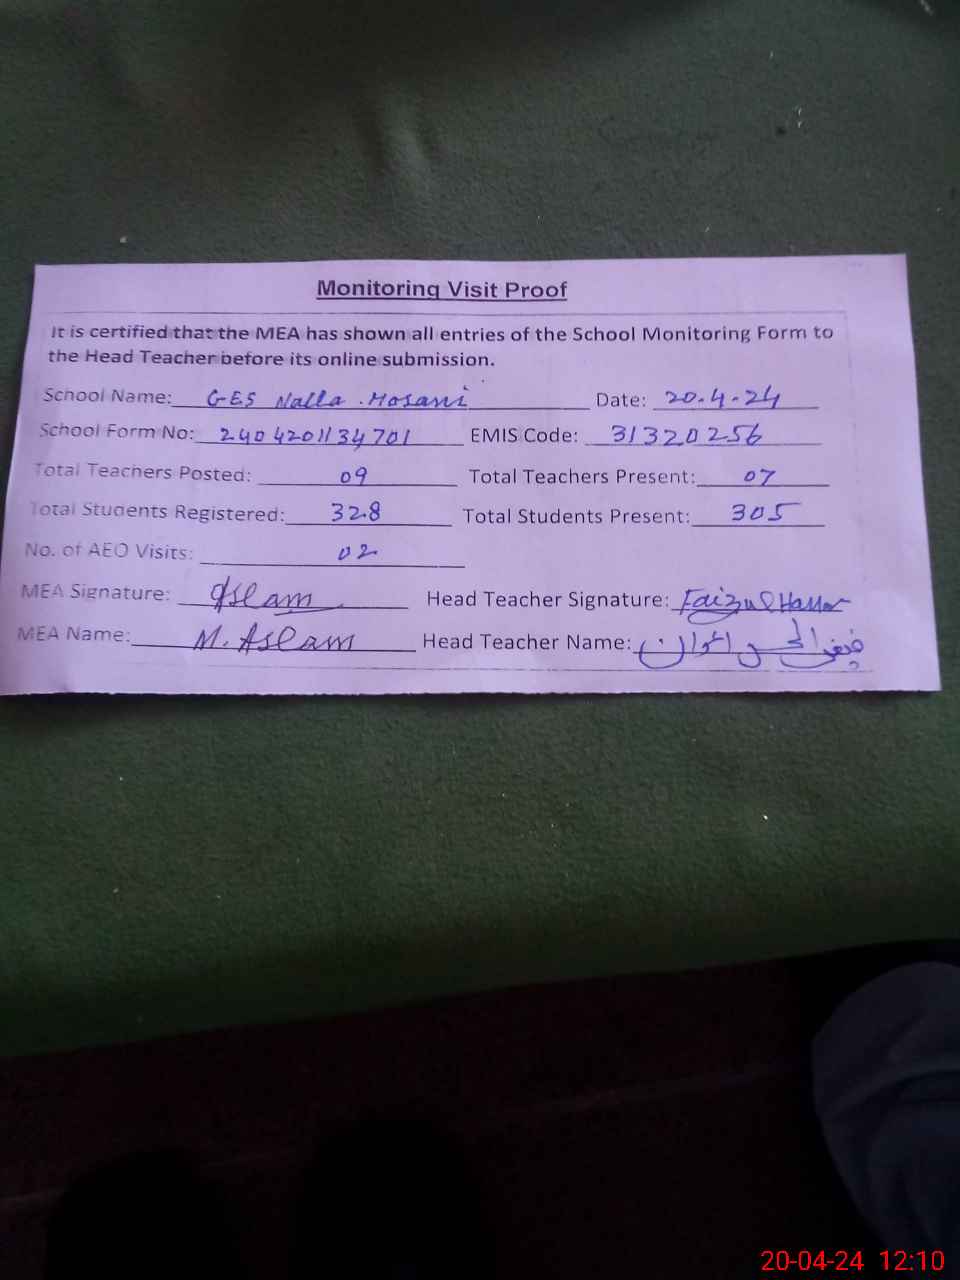 Monitoring Visit Proof
It is certified that the MEA has shown all entries of the School Monitoring Form to
the Head Teacher before its online submission.
School Name: GES Nalla Hosani Date: 20.4.24
School Form No: 240420113 4701 EMIS Code: 31320256
Total Teachers Posted: 09 Total Teachers Present: 07
Total Students Registered: 328 Total Students Present: 305
No. of AEO Visits: 02
MEA Signature: Aslam Head Teacher Signature: Faizul Hassan
MEA Name: M. Aslam Head Teacher Name: فیض الحسن اعوان
20-04-24 12:10